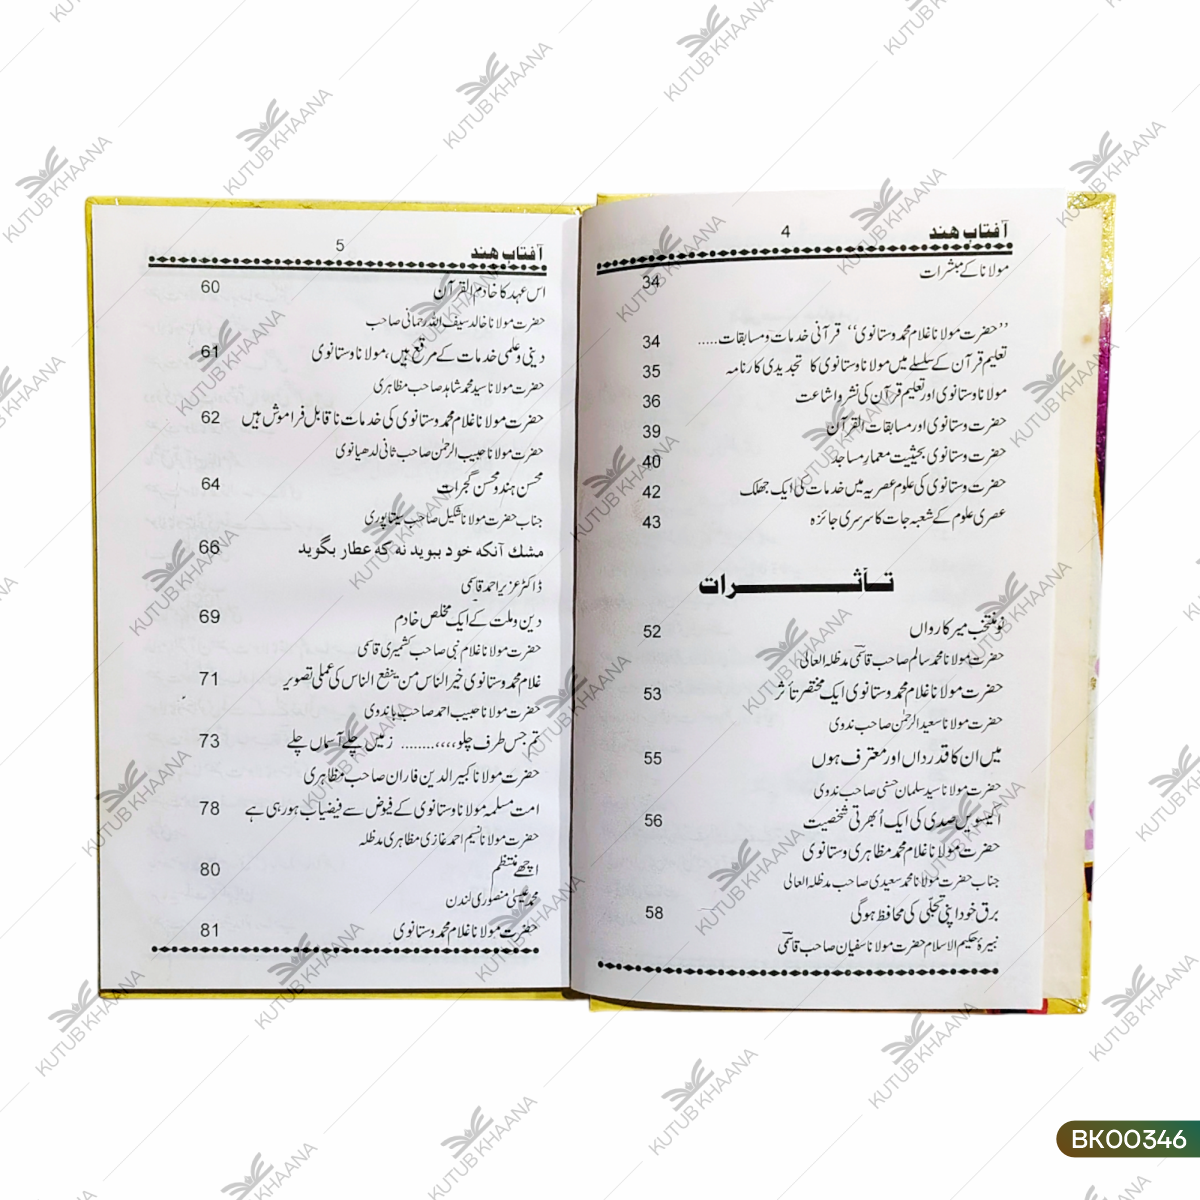 آفتاب ھند 4
مولانا کے مبشرات 34
’’حضرت مولانا غلام محمد وستانوی‘‘ قرآنی خدمات و مسابقات..... 34
تعلیم قرآن کے سلسلے میں مولانا وستانوی کا تجدیدی کارنامہ 35
مولانا وستانوی اور تعلیم قرآن کی نشر و اشاعت 36
حضرت وستانوی اور مسابقات القرآن 39
حضرت وستانوی بحیثیت معمارِ مساجد 40
حضرت وستانوی کی علوم عصریہ میں خدمات کی ایک جھلک 42
عصری علوم کے شعبہ جات کا سرسری جائزہ 43
تأثرات
نو منتخب میر کارواں 52
حضرت مولانا محمد سالم صاحب قاسمی مدظلہ العالی
حضرت مولانا غلام محمد وستانوی ایک مختصر تأثر 53
حضرت مولانا سعید الرحمٰن صاحب ندوی
میں ان کا قدرداں اور معترف ہوں 55
حضرت مولانا سید سلمان حسنی صاحب ندوی
اکیسویں صدی کی ایک اُبھرتی شخصیت 56
حضرت مولانا غلام محمد مظاہری وستانوی
جناب حضرت مولانا محمد سعیدی صاحب مدظلہ العالی
برق خود اپنی تجلّی کی محافظ ہوگی 58
نبیرۂ حکیم الاسلام حضرت مولانا سفیان صاحب قاسمی
آفتاب ھند 5
اس عہد کا خادم القرآن 60
حضرت مولانا خالد سیف اللہ رحمانی صاحب
دینی و علمی خدمات کے مرقع ہیں، مولانا وستانوی 61
حضرت مولانا سید محمد شاہد صاحب مظاہری
حضرت مولانا غلام محمد وستانوی کی خدمات ناقابل فراموش ہیں 62
حضرت مولانا حبیب الرحمٰن صاحب ثانی لدھیانوی
محسن ہند و محسن گجرات 64
جناب حضرت مولانا شکیل صاحب سیتاپوری
مشك آنکه خود ببوید نه که عطار بگوید 66
ڈاکٹر عزیر احمد قاسمی
دین و ملت کے ایک مخلص خادم 69
حضرت مولانا غلام نبی صاحب کشمیری قاسمی
غلام محمد وستانوی خیر الناس من ینفع الناس کی عملی تصویر 71
حضرت مولانا حبیب احمد صاحب باندوی
تم جس طرف چلو،،،،........ زمیں چلے آسماں چلے 73
حضرت مولانا کبیر الدین فاران صاحب مظاہری
امت مسلمہ مولانا وستانوی کے فیوض سے فیضیاب ہو رہی ہے 78
حضرت مولانا نسیم احمد غازی مظاہری مدظلہ
اچھے منتظم 80
محمد عیسیٰ منصوری لندن
حضرت مولانا غلام محمد وستانوی 81
KUTUB KHAANA
BK00346